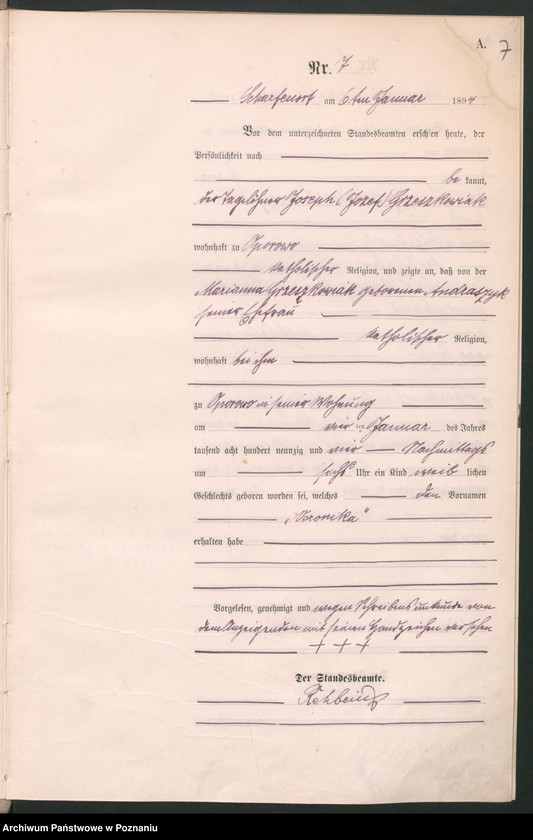 A.
7
Nr. 7
Scharfenort am 6ten Januar 1894
Vor dem unterzeichneten Standesbeamten erschien heute, der
Persönlichkeit nach
be kannt,
der Tagelöhner Joseph (Jozef) Grzeszkowiak
wohnhaft zu Oporowo
katholischer Religion, und zeigte an, daß von der
Marianna Grzeszkowiak geborenen Andraszyk
seiner Ehefrau
katholischer Religion,
wohnhaft bei ihm
zu Oporowo in seiner Wohnung
am vier ten Januar des Jahres
tausend acht hundert neunzig und vier Nachmittags
um sechs Uhr ein Kind weib lichen
Geschlechts geboren worden sei, welches den Vornamen
„Veronika“
erhalten habe
Vorgelesen, genehmigt und wegen Schreibensunkunde von
dem Anzeigenden mit seinen Handzeichen versehen
+ + +
Der Standesbeamte.
Rehbein
Archiwum Państwowe w Poznaniu